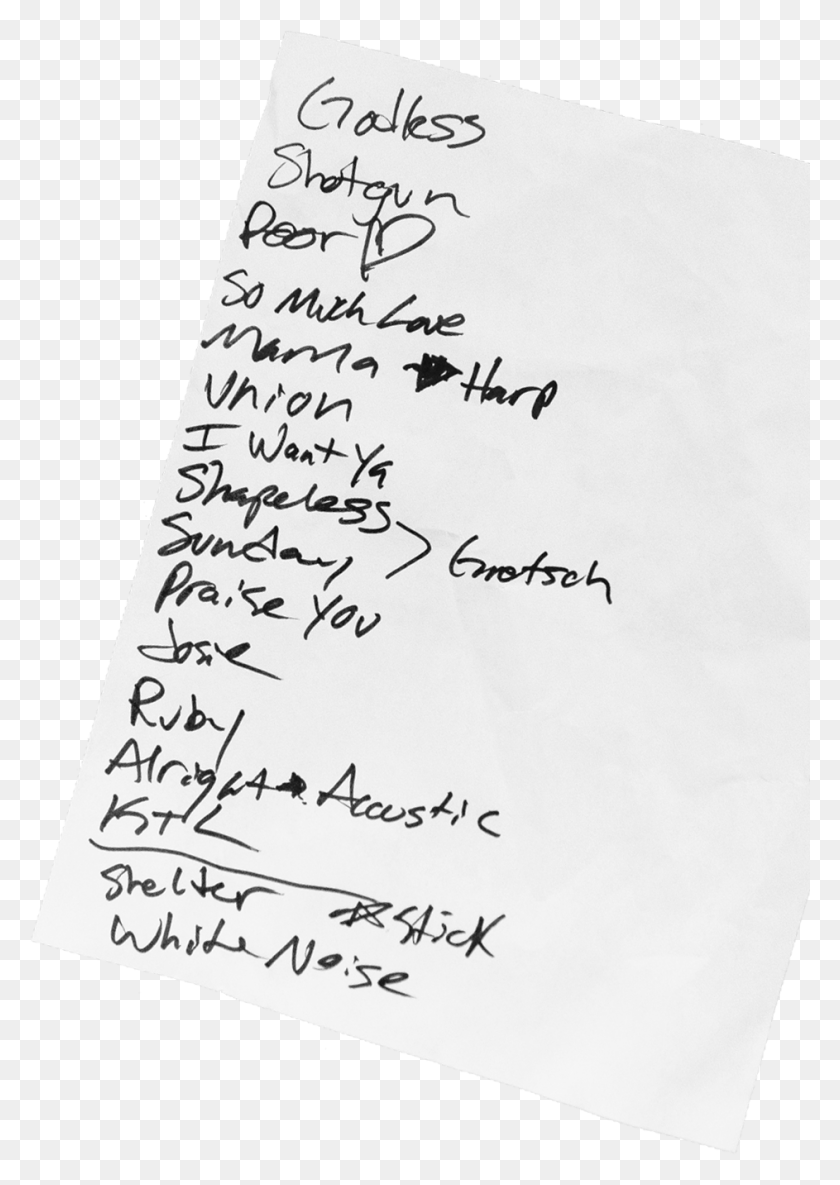 Godless
Shotgun
Poor ♡
So Much Love
Mama → Harp
Union
I Want Ya
Shapeless
Sunday > Gretsch
Praise You
Josie
Ruby
Alright → Accustic
KTL
Shelter ☆ Stick
White Noise